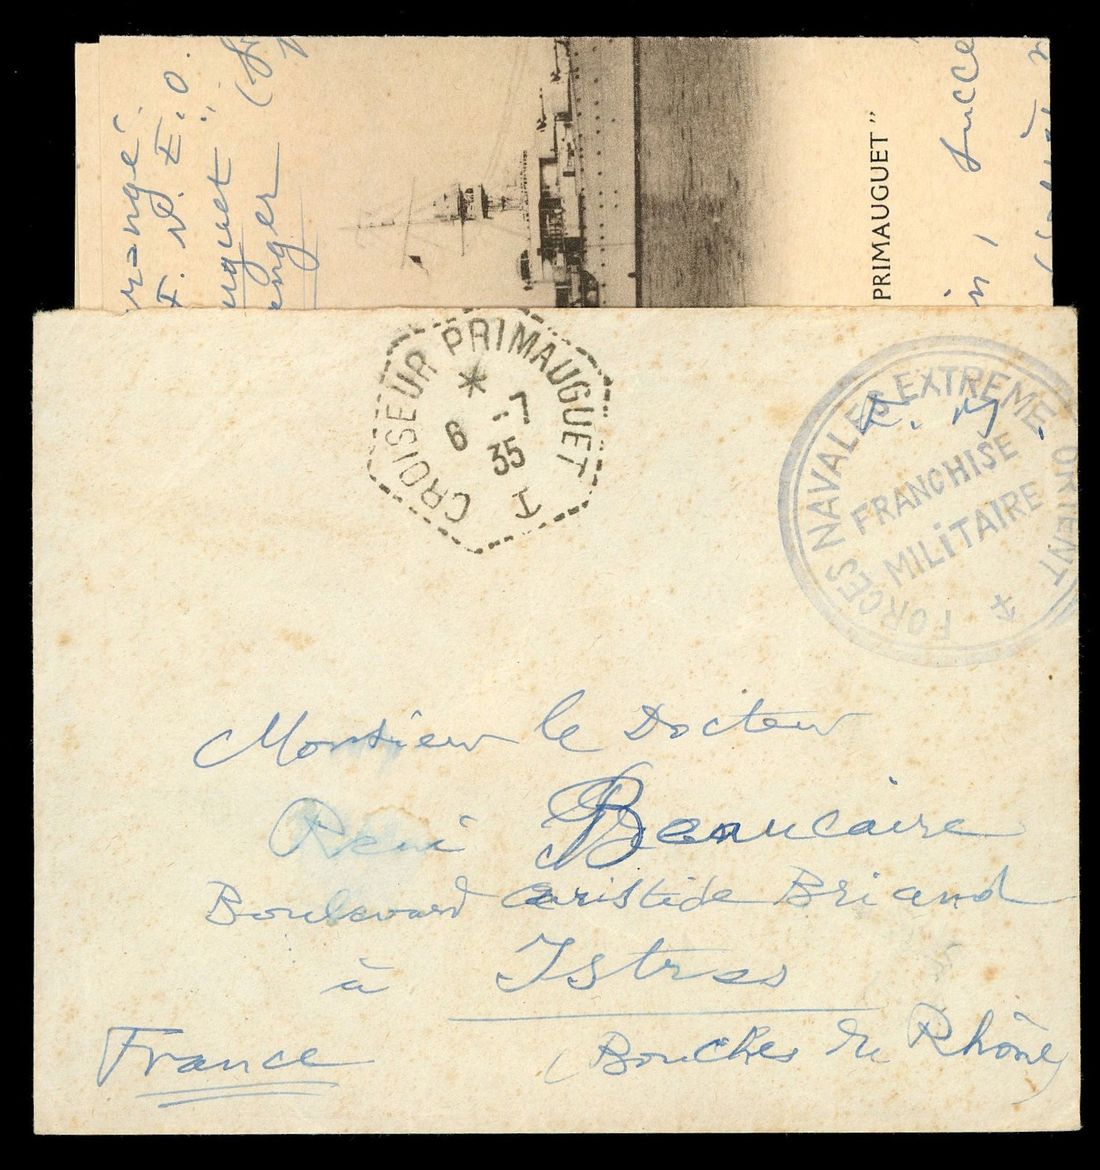 r=angé
F. N. E. O.
uguet"
anger
"PRIMAUGUET"
in, succe
CROISEUR PRIMAUGUET
6 -7
35
FORCES NAVALES EXTREME ORIENT
FRANCHISE
MILITAIRE
Monsieur le Docteur
René Beaucaire
Boulevard Aristide Briand
à Istres
(Bouches du Rhône)
France